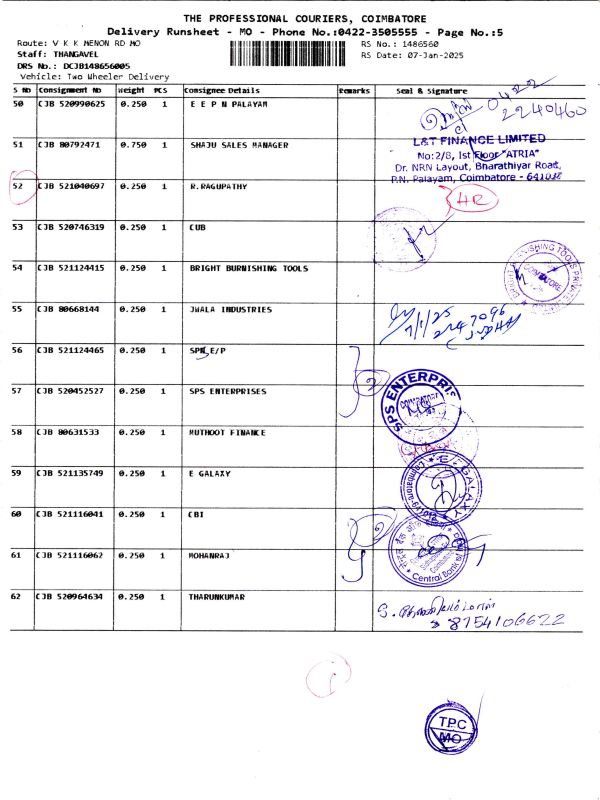 THE PROFESSIONAL COURIERS, COIMBATORE
Delivery Runsheet - MO - Phone No.:0422-3505555 - Page No.:5
Route: V K K MENON RD MO
RS No.: 1486560
Staff: THANGAVEL
RS Date: 07-Jan-2025
DRS No.: DCJB148656005
Vehicle: Two Wheeler Delivery
S No Consignment No Weight PCS Consignee Details Remarks Seal & Signature
50 CJB 520990625 0.250 1 E E P N PALAYAM
0422
2240460
51 CJB 80792471 0.750 1 SHAJU SALES MANAGER
L&T FINANCE LIMITED
No:2/8, 1st Floor "ATRIA"
Dr. NRN Layout, Bharathiyar Road,
P.N. Palayam, Coimbatore - 641038
52 CJB 521040697 0.250 1 R.RAGUPATHY
HR
53 CJB 520746319 0.250 1 CUB
54 CJB 521124415 0.250 1 BRIGHT BURNISHING TOOLS
BRIGHT BURNISHING TOOLS PRIVATE
COIMBATORE
55 CJB 80668144 0.250 1 JWALA INDUSTRIES
7/1/25
2247096
56 CJB 521124465 0.250 1 SPN E/P
2
57 CJB 520452527 0.250 1 SPS ENTERPRISES
SPS ENTERPRIS
COIMBATORE
58 CJB 80631533 0.250 1 MUTHOOT FINANCE
59 CJB 521135749 0.250 1 E GALAXY
E-GALAXY
60 CJB 521116041 0.250 1 CBI
Central Bank of
61 CJB 521116062 0.250 1 MOHANRAJ
62 CJB 520964634 0.250 1 THARUNKUMAR
8754106622
1
TPC
MO